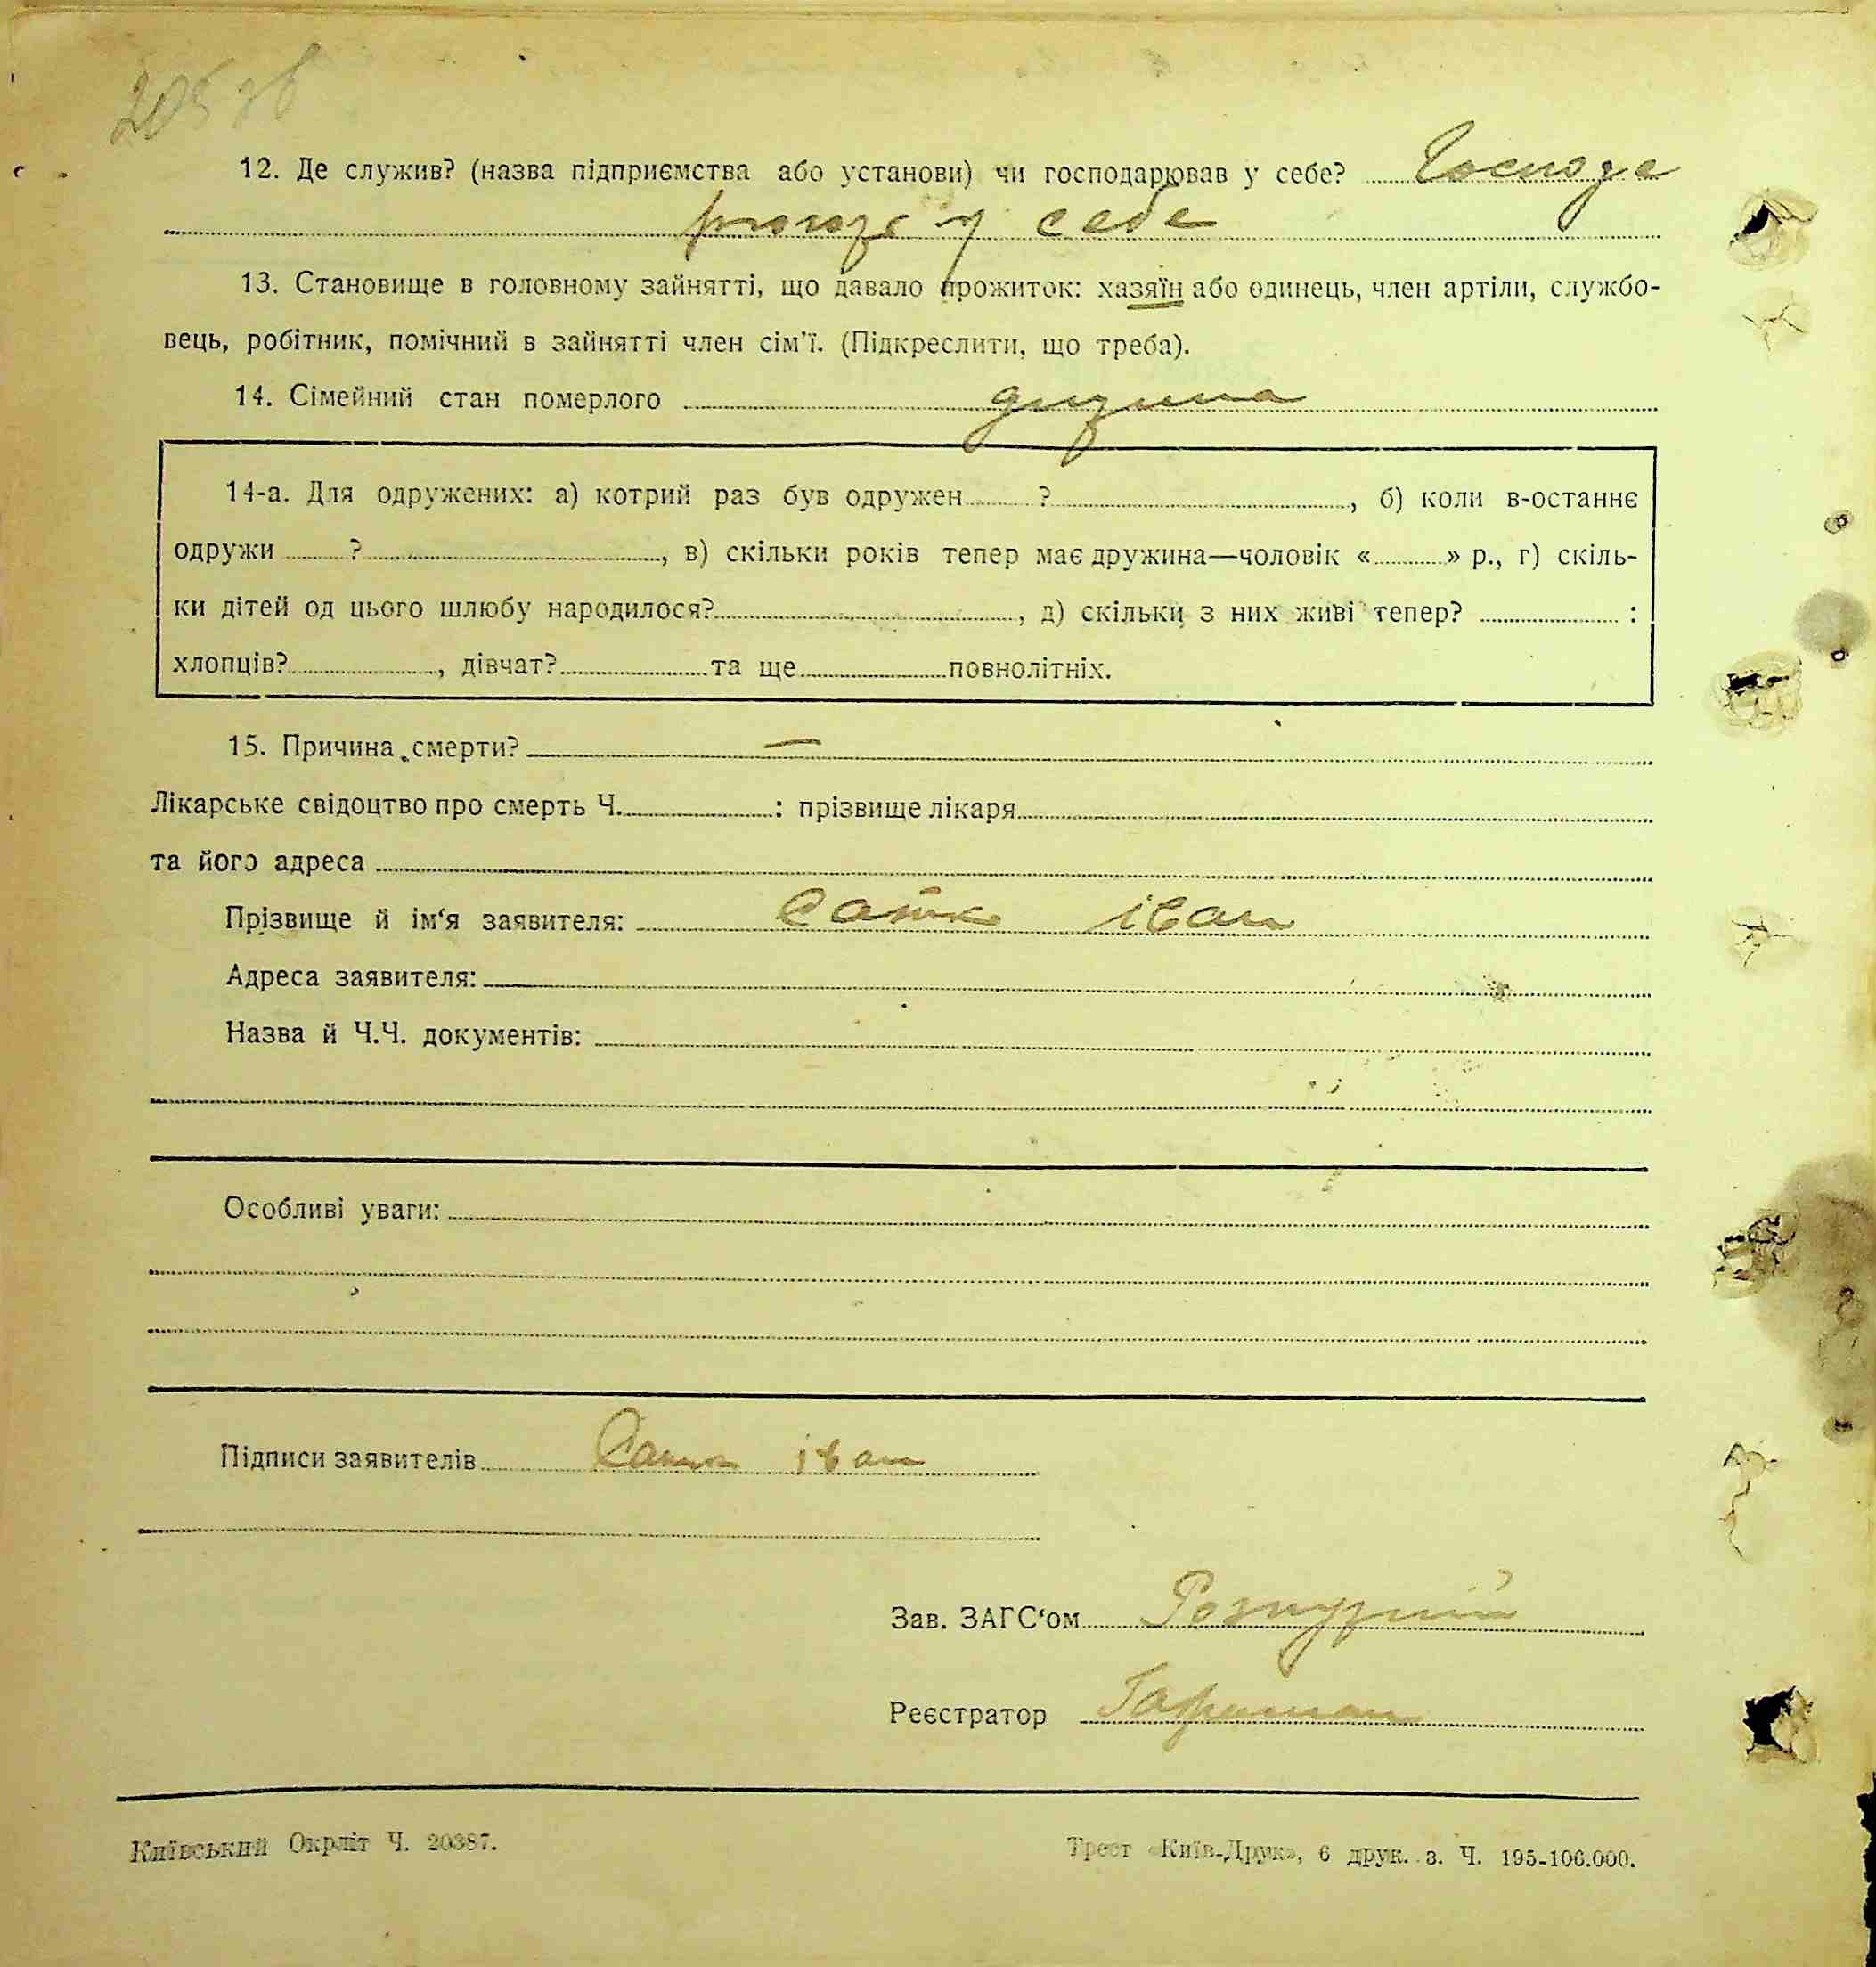 205 зв
12. Де служив? (назва підприємства або установи) чи господарював у себе? Господа
рює у себе
13. Становище в головному зайнятті, що давало прожиток: хазяїн або одинець, член артіли, службо-
вець, робітник, помічний в зайнятті член сім'ї. (Підкреслити, що треба).
14. Сімейний стан померлого дитина
14-а. Для одружених: а) котрий раз був одружен ? , б) коли в-останнє
одружи ? , в) скільки років тепер має дружина—чоловік « » р., г) скіль-
ки дітей од цього шлюбу народилося? , д) скільки з них живі тепер? :
хлопців? , дівчат? та ще повнолітніх.
15. Причина смерти? —
Лікарське свідоцтво про смерть Ч. : прізвище лікаря
та його адреса
Прізвище й ім'я заявителя: Сатко іван
Адреса заявителя:
Назва й Ч.Ч. документів:
Особливі уваги:
Підписи заявителів іван
Зав. ЗАГС'ом
Реєстратор
Київський Окрліт Ч. 20387.
Трест «Київ-Друк», 6 друк. з. Ч. 195-100.000.